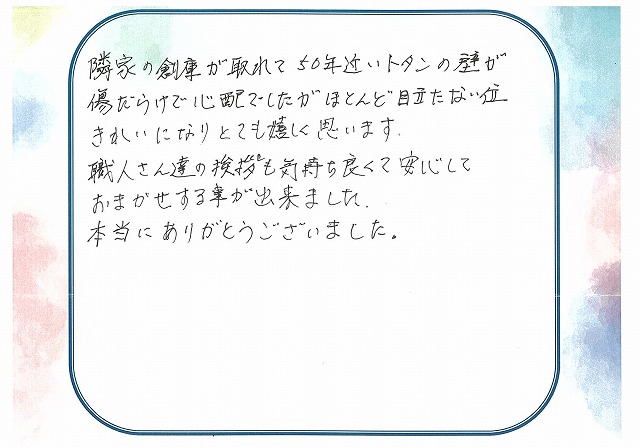 隣家の倉庫が取れて50年近いトタンの壁が
傷だらけで心配でしたがほとんど目立たない位
きれいになりとても嬉しく思います.
職人さん達の挨拶も気持ち良くて安心して
おまかせする事が出来ました.
本当にありがとうございました。